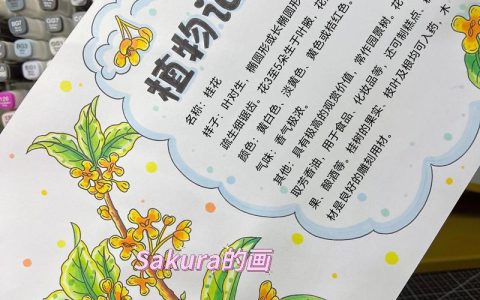 植物记
名称：桂花
样子：叶对生，椭圆形或长椭圆形
疏生细锯齿。花3至5朵生于叶腋，花
颜色：黄白色、淡黄色、黄色或桔红色。
气味：香气极浓。
其他：具有极高的观赏价值，常作园景树。花
取芳香油，用于食品、化妆品等，还可制糕点、
果、酿酒等。桂树的果实、枝叶及根均可入药，木
材是良好的雕刻用材。
Sakura的画